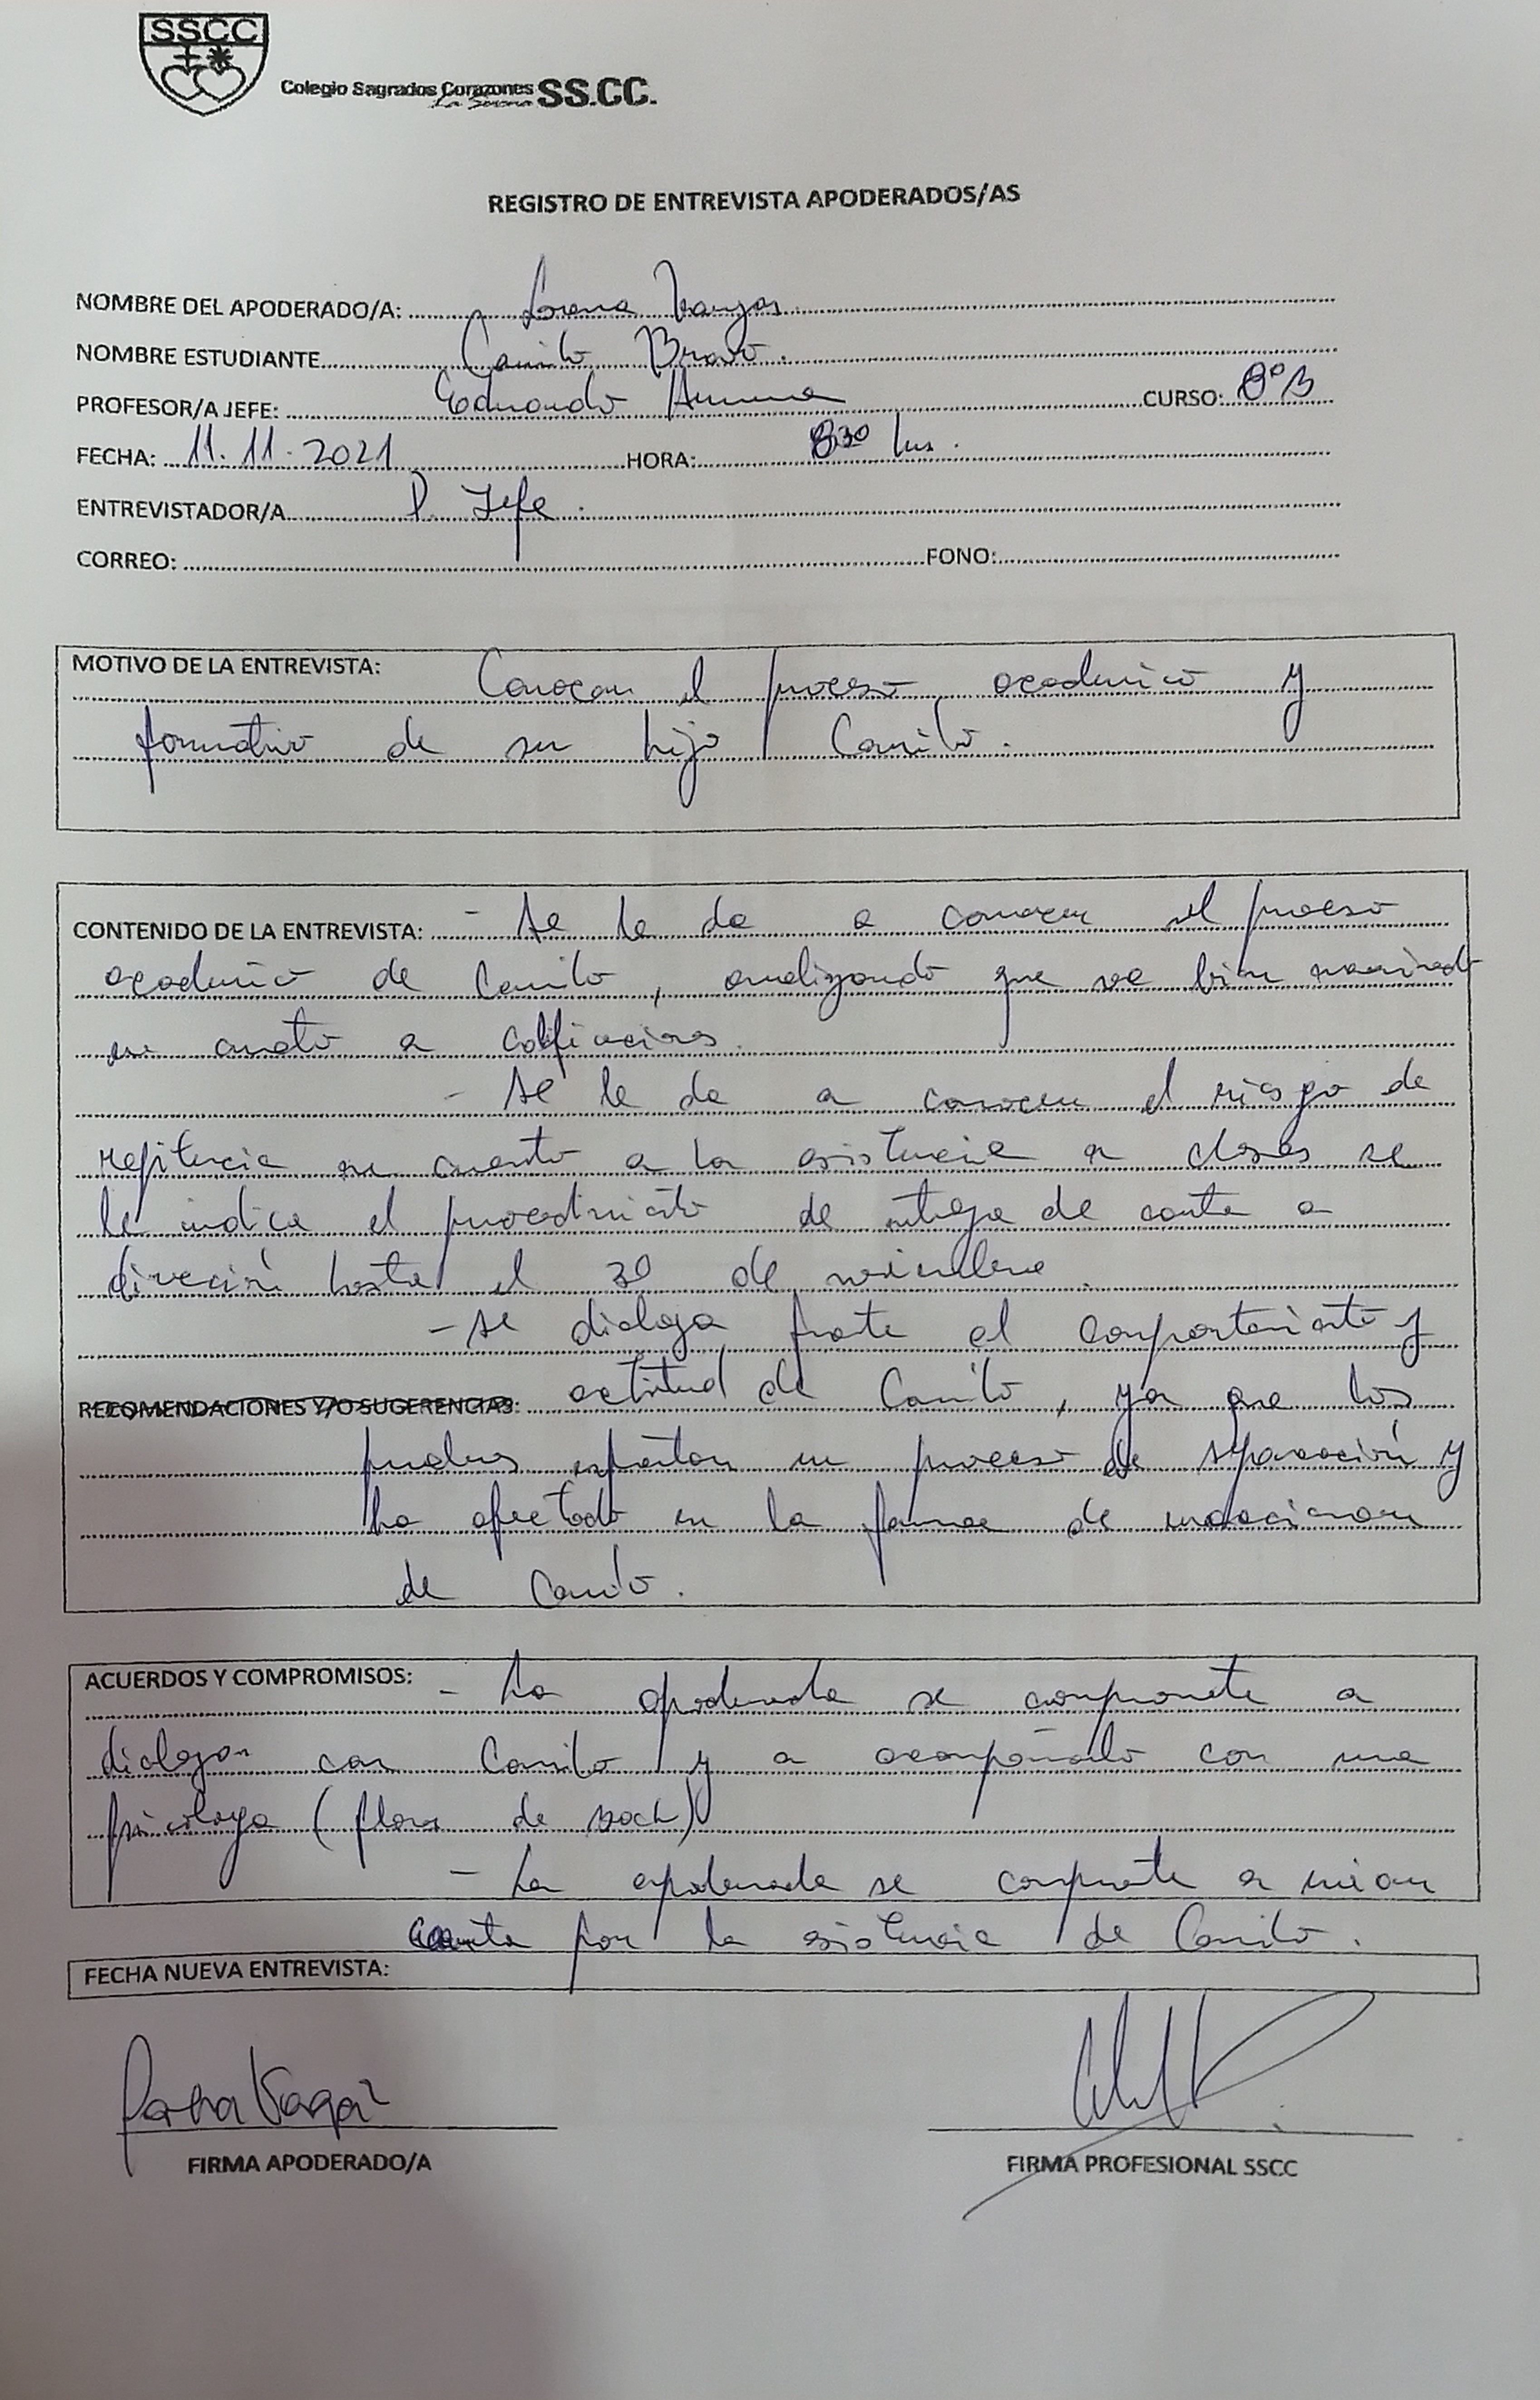 SSCC
Colegio Sagrados Corazones SS.CC.
La Serena
REGISTRO DE ENTREVISTA APODERADOS/AS
NOMBRE DEL APODERADO/A: Lorena Vargas
NOMBRE ESTUDIANTE Camilo Bravo.
PROFESOR/A JEFE: Eduardo CURSO: 8°B
FECHA: 11.11.2021 HORA: 8:30 hrs.
ENTREVISTADOR/A P. Jefe.
CORREO: FONO:
MOTIVO DE LA ENTREVISTA: Conocer el proceso academico y
formativo de su hijo Camilo.
CONTENIDO DE LA ENTREVISTA: - Se le da a conocer el proceso
academico de Camilo, analizando que va bien
en cuanto a calificaciones.
- Se le da a conocer el riesgo de
repitencia en cuanto a la asistencia a clases se
le indica el procedimiento de entrega de carta a
dirección hasta el 30 de noviembre.
- Se dialoga frente al comportamiento y
RECOMENDACIONES Y/O SUGERENCIAS: actitud de Camilo, ya que los
padres están en proceso de separación y
ha afectado en la forma de
de Camilo.
ACUERDOS Y COMPROMISOS: - La apoderada se compromete a
dialogar con Camilo y a acompañarlo con una
psicologa (flores de bach)
- La apoderada se compromete a enviar
carta por la asistencia de Camilo.
FECHA NUEVA ENTREVISTA:
FIRMA APODERADO/A FIRMA PROFESIONAL SSCC